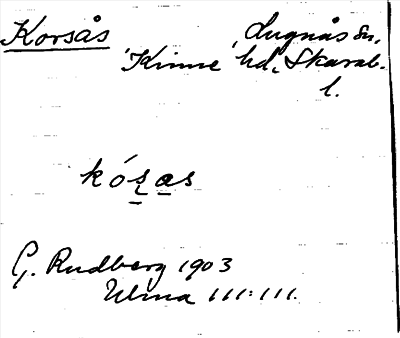 Korsås Lugnås sn,
Kinne hd, Skarab.
l.
kósas
G. Rudberg 1903
Ulma 111:111.